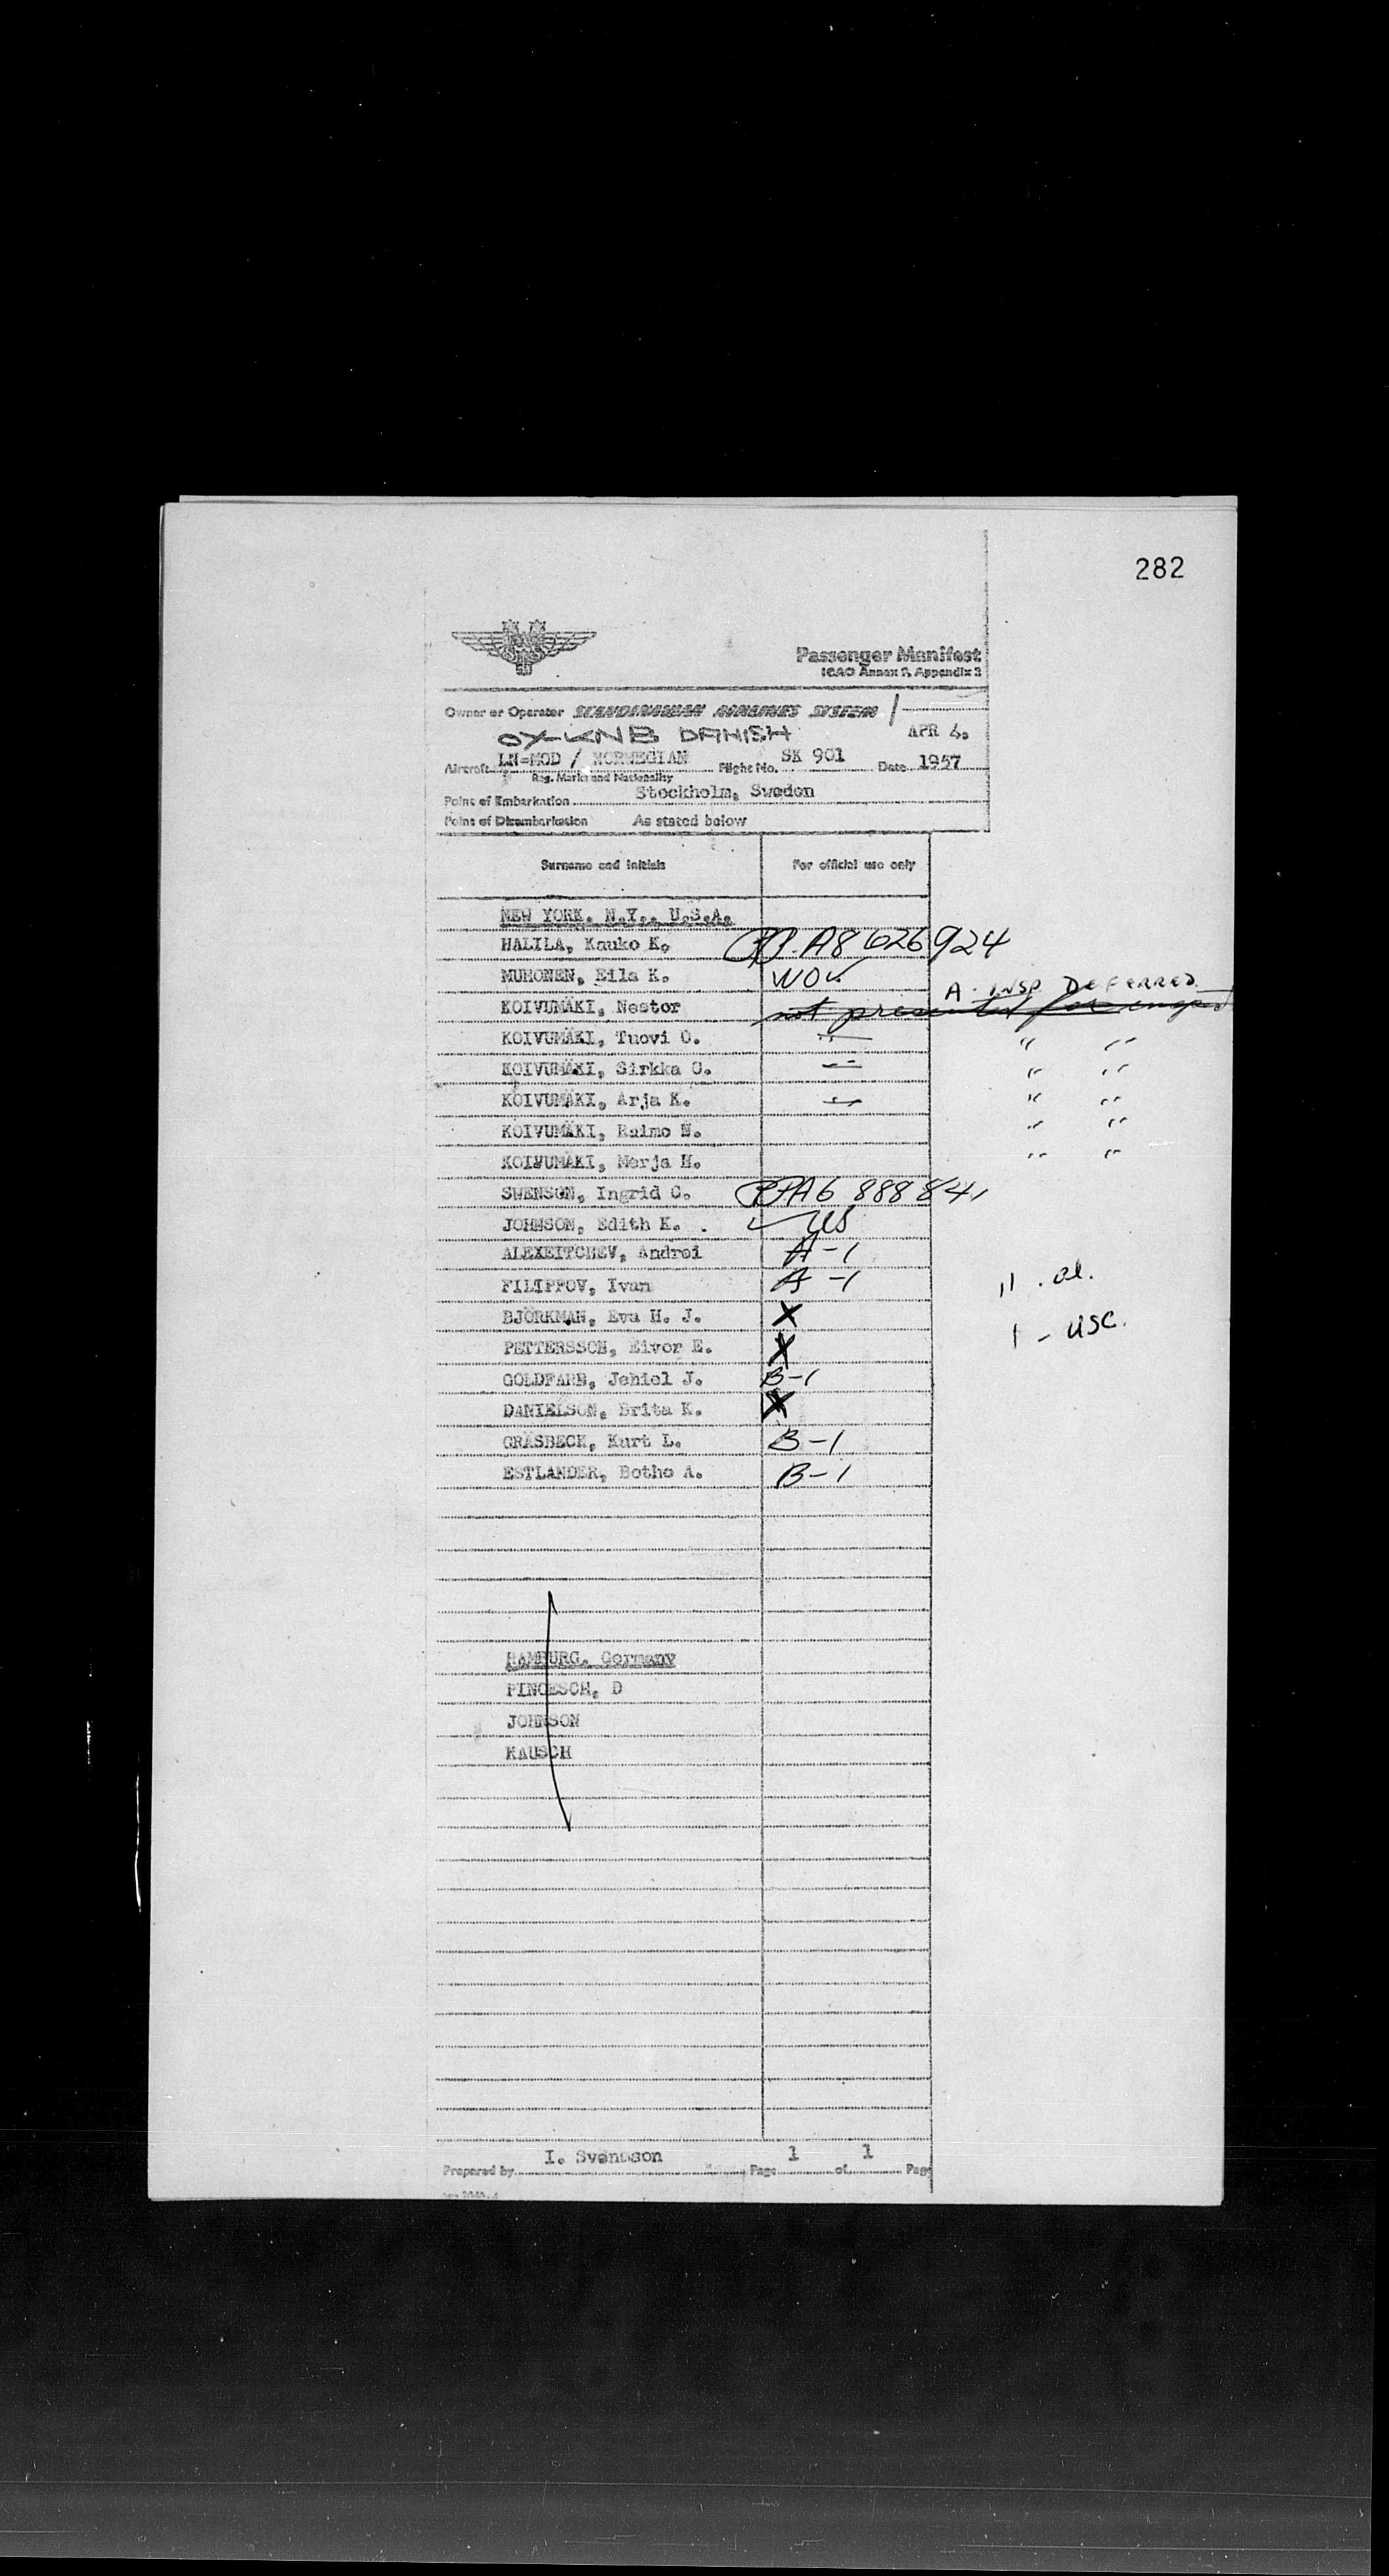 282
Passenger Manifest
ICAO Annex 9, Appendix 3
Owner or Operator SCANDINAVIAN AIRLINES SYSTEM
OY-KNB DANISH
APR 4.
Aircraft LN-MOD / NORWEGIAN Flight No. SK 901 Date 1957
Reg. Marks and Nationality
Point of Embarkation Stockholm, Sweden
Point of Disembarkation As stated below
Surname and initials For official use only
NEW YORK. N.Y., U.S.A.
HALILA, Kauko K. A8 626 924
MUHONEN, Eila K.
A-INSP DEFERRED
KOIVUMÄKI, Nestor not presented for
KOIVUMÄKI, Tuovi O. " "
KOIVUMÄKI, Sirkka O. " "
KOIVUMÄKI, Arja K. " "
KOIVUMÄKI, Raimo N. " "
KOIVUMÄKI, Merja H. " "
SWENSON, Ingrid C. A6 888 841
JOHNSON, Edith K. US
ALEXEITCHEV, Andrei A-1
FILIPPOV, Ivan A-1 11 . al.
BJÖRKMAN, Eva H. J. X
1 - USC.
PETTERSSON, Eivor E. X
GOLDFARB, Jehiel J. B-1
DANIELSON, Brita K. X
GRÄSBECK, Kurt L. B-1
ESTLANDER, Botho A. B-1
HAMBURG. Germany
D
JOHNSON
KAUSCH
Prepared by I. Svensson Page 1 of 1 Page